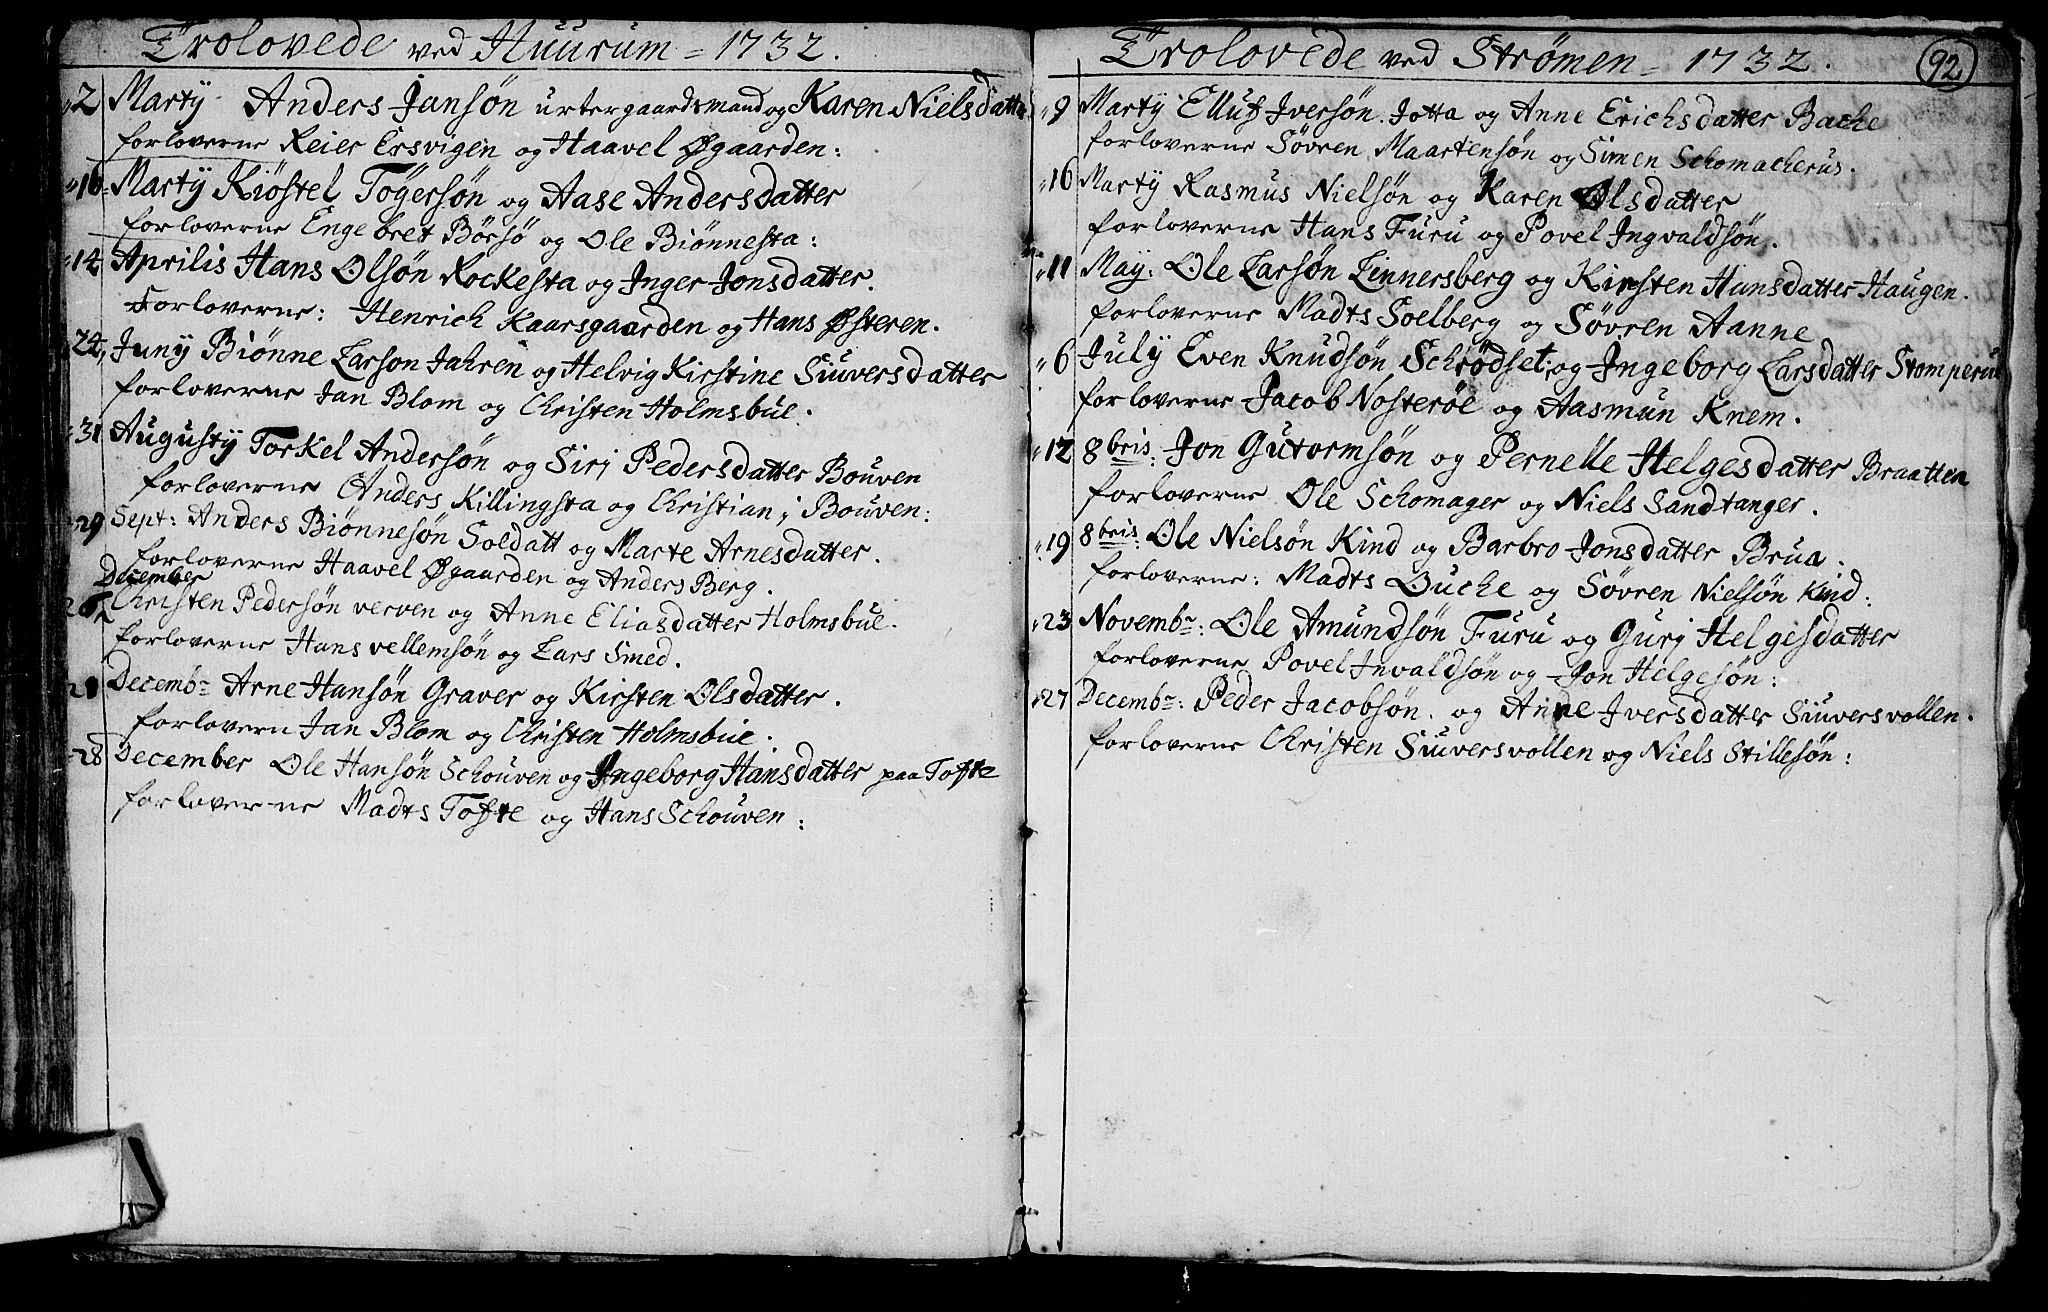 Trolovede ved Huurum = 1732.
2 Martÿ Anders Jansøn urtergaardsmand og Karen Nielsdatter
forloverne Reier Ersvigen og Haavel Øgaarden:
16 Martÿ Kiøstel Tøgersøn og Aase Andersdatter
forloverne Engebret Børsø og Ole Biønnesta:
14 Aprilis Hans Olsøn Rockesta og Inger Jonsdatter.
Forloverne: Henrich Kaarsgaarden og Hans Østeren.
24 Junÿ Biønne Larson Jahren og Helvig Kirstine Siuversdatter
forloverne Jan Blom og Christen Holmsbue.
31 Augustÿ Torkel Andersøn og Sirj Pedersdatter Bouven
forloverne Anders Killingsta og Christian i Bouven:
29 Sept: Anders Biønnesøn Soldatt og Marte Arnesdatter.
forloverne Haavel Øgaarden og Anders Berg.
December
26 Christen Pedersøn verven og Anne Eliasdatter Holmsbue.
forloverne Hans vellemsøn og Lars Smed.
Decembr Arne Hansøn Graver og Kirsten Olsdatter.
forlovern Jan Blom og Christen Holmsbue.
28 December Ole Hansøn Schouven og Ingeborg Hansdatter paa Tofte
forloverne Madts Tofte og Hans Schouven:
Trolovede ved Strømen = 1732.
92
9 Martÿ Elluf Iversøn Jotta og Anne Erichsdatter Bache
forloverne Søvren Maartensøn og Simen Schomacherus.
16 Martÿ Rasmus Nielsøn og Karen Olsdatter
forloverne Hans Furu og Povel Ingvaldsøn.
11 Maÿ: Ole Larsøn Linnersberg og Kirsten Hansdatter Haugen.
forloverne Madts Soelberg og Søvren Aanne
6 Julÿ Even Knudsøn Schrødset og Ingeborg Larsdatter Stomperud
forloverne Jacob Nosterøe og Aasmun Knem.
12 8bris: Jon Gutormsøn og Pernelle Helgesdatter Braatten
forloverne Ole Schomager og Niels Sandtanger.
19 8bris: Ole Nielsøn Kind og Barbro Jonsdatter Brua.
forloverne: Madts Ouche og Søvren Nielsøn Kind:
23 Novembr: Ole Amundsøn Furu og Gurj Helgesdatter
forloverne Povel Invaldsøn og Jon Helgesøn:
27 Decembr: Peder Jacobsøn. og Anne Iversdatter Siuversvollen.
forloverne Christen Siuversvollen og Niels Stillesøn: